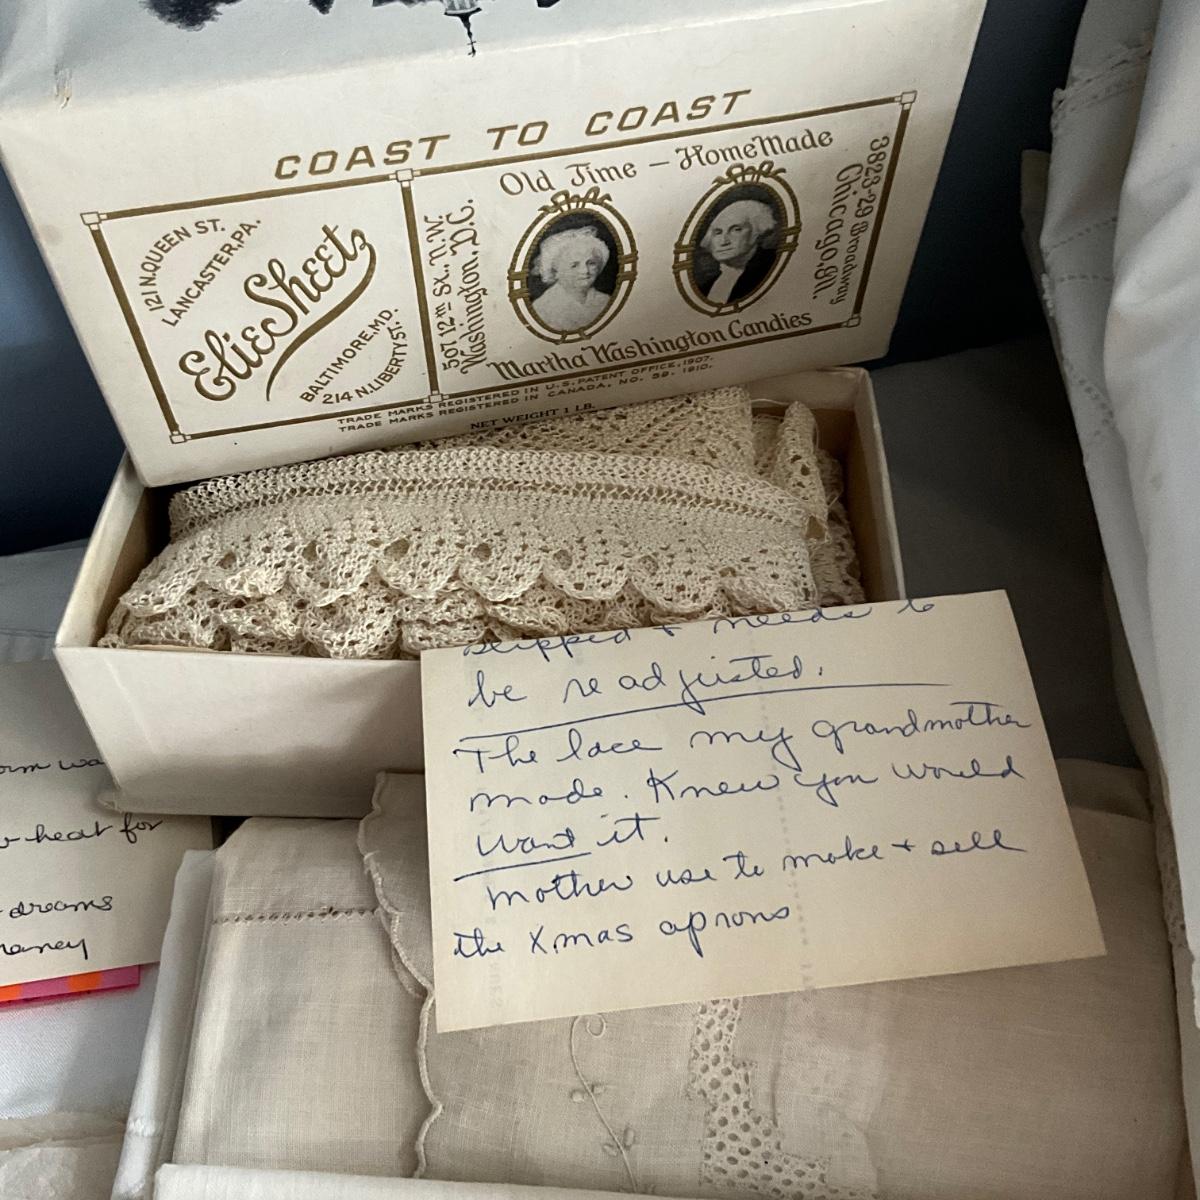 COAST TO COAST
121 N. QUEEN ST.
LANCASTER, PA.
Elie Sheetz
BALTIMORE, MD.
214 N. LIBERTY ST.
507 12th St., N.W.
Washington, D.C.
Old Time – HomeMade
Martha Washington Candies
3823-29 Broadway
Chicago, Ill.
TRADE MARKS REGISTERED IN U.S. PATENT OFFICE, 1907.
TRADE MARKS REGISTERED IN CANADA, NO. 59. 1910.
NET WEIGHT 1 LB.
slipped + needs to
be readjusted.
The lace my grandmother
made. Knew you would
want it.
Mother use to make + sell
the Xmas aprons
heat for
dreams